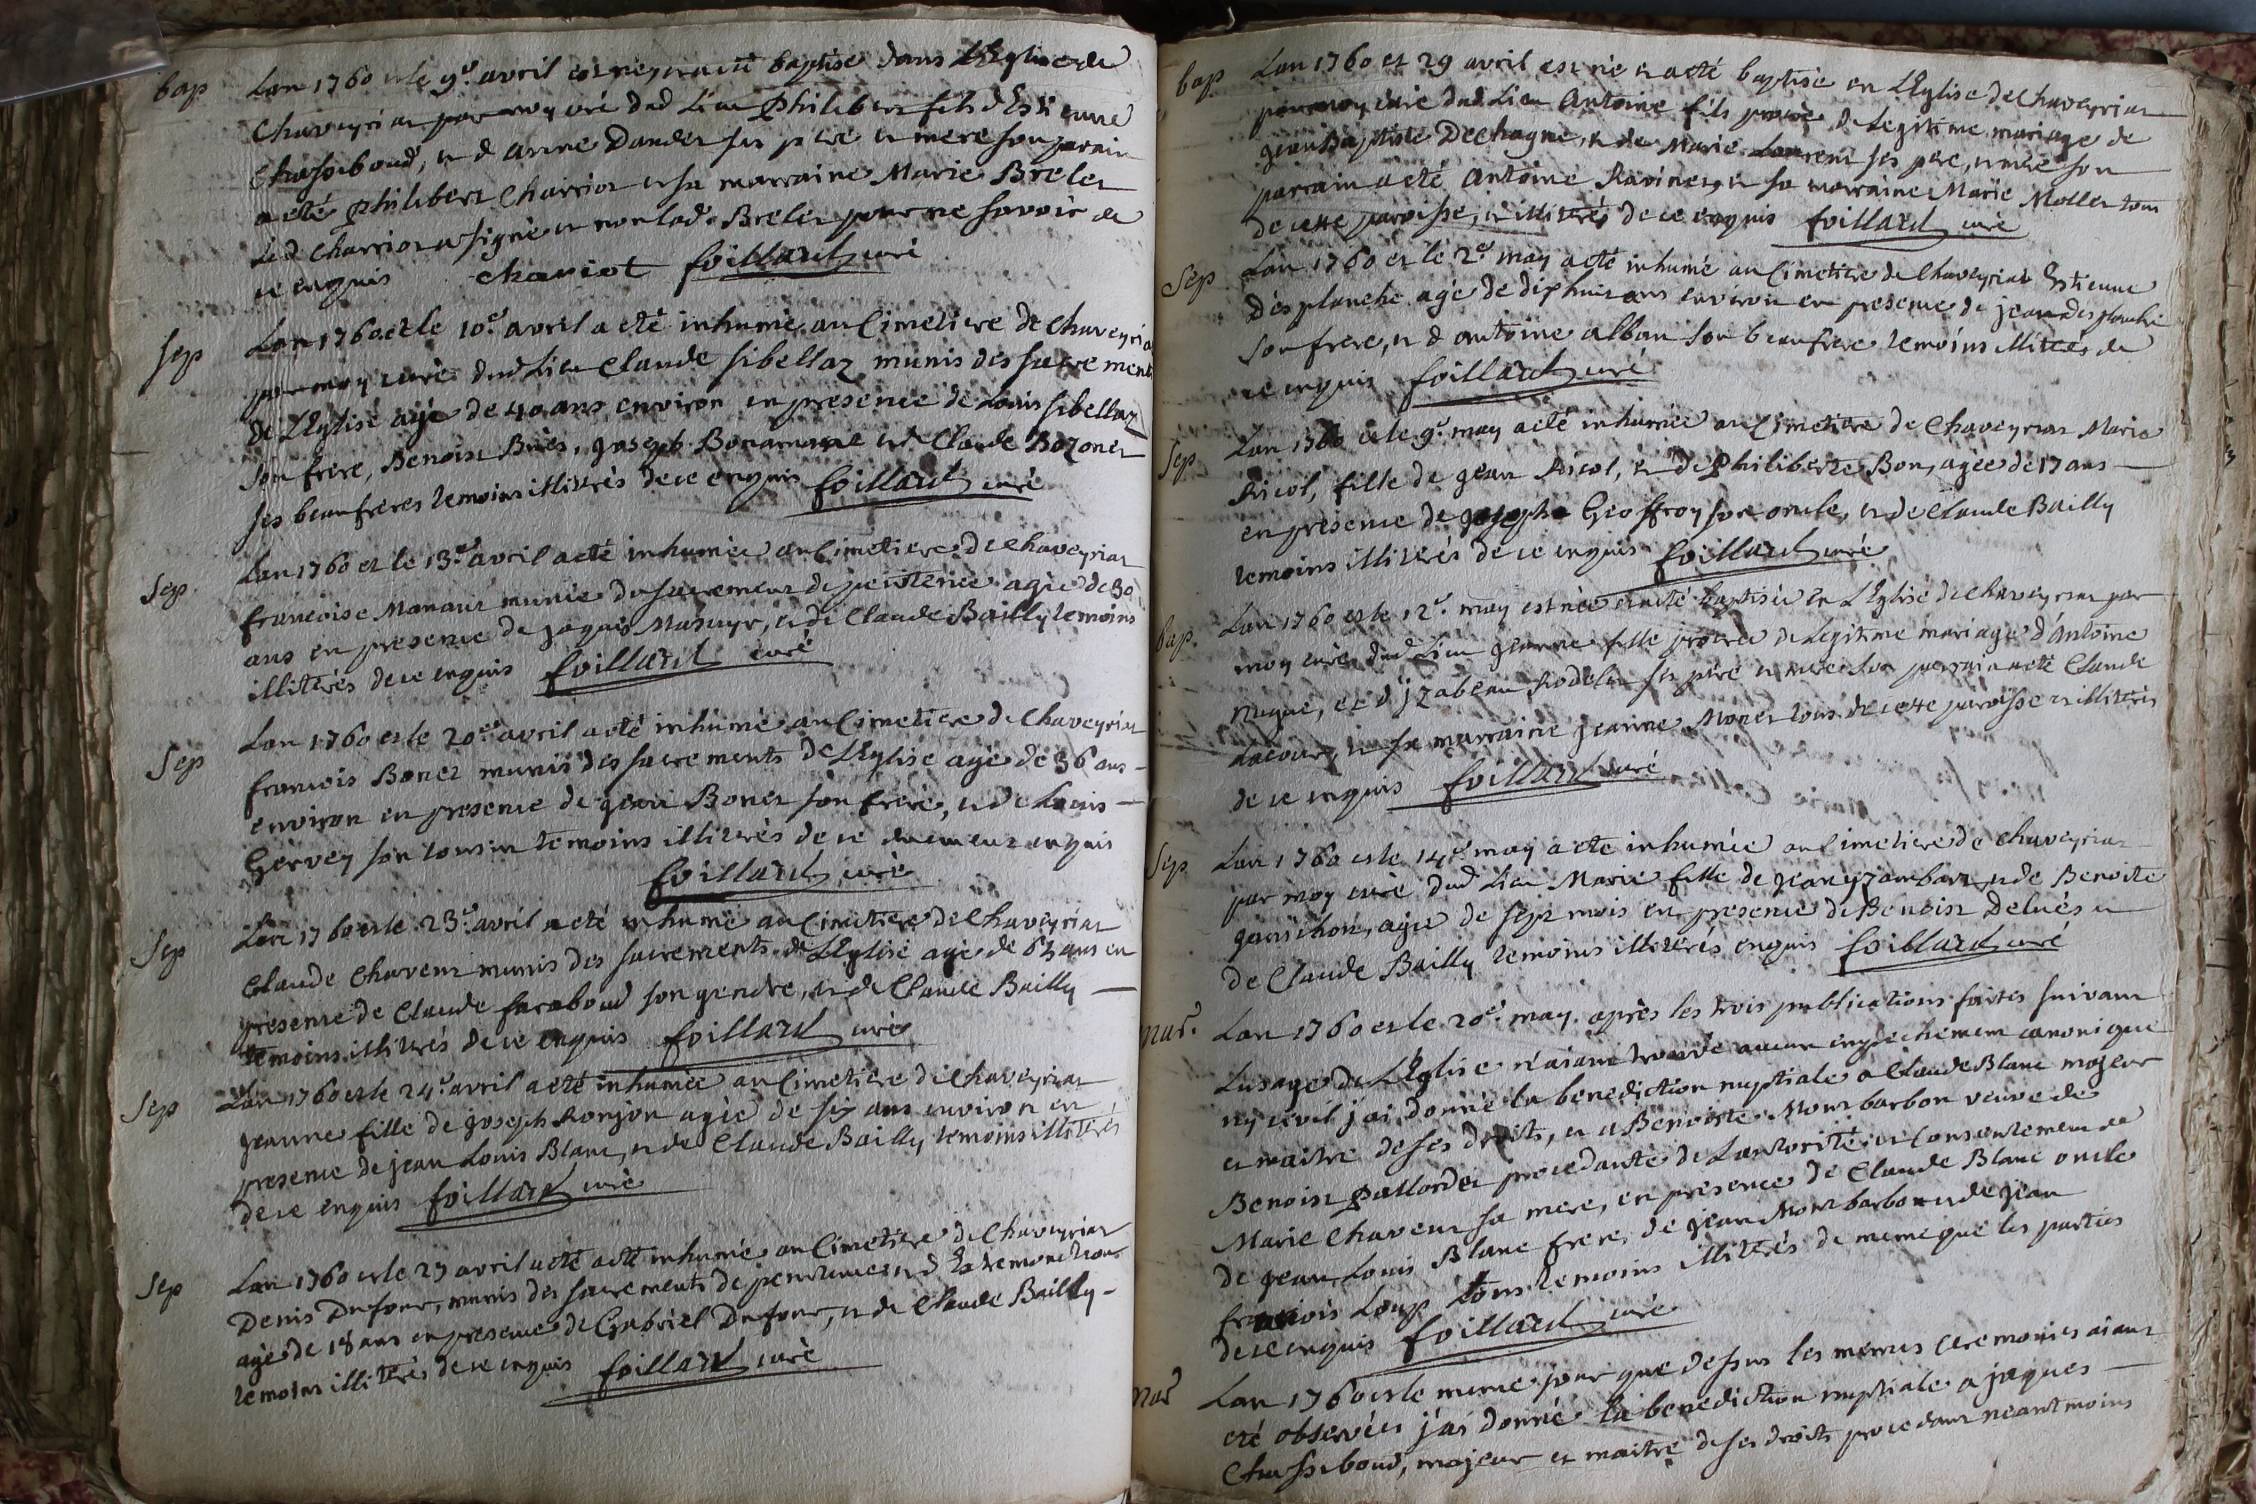 bap Lan 1760 et le 9e avril est né et a été baptisé dans LEglise de
Chaveyriat par moy curé dud Lieu Philibert fils d'Estienne
Chassiboud, et d'anne Dander ses pere et mere son parain
a eté philibert Charriot et sa marraine Marie Brelet
Led Charriot a signé et non lad. Brelet pour ne savoir de
ce enquis chariot foillard curé
Sep Lan 1760 et le 10e avril a eté inhumé au Cimetiere de Chaveyria
par moy curé dud Lieu Claude sibellaz munis des sacrements
de LEglise agé de 40 ans environ en presence de Louis sibellaz
son frere, Benoist Buès, joseph Bonamour et de Claude Bozonet
ses beaufreres temoins illitérés de ce enquis foillard curé
Sep Lan 1760 et le 13e avril a eté inhumée au Cimetiere de Chaveyriat
francoise Monaut munie du sacrement de penitence agée de 30
ans en presence de jaques Masuyr, et de Claude Bailly temoins
illiterés de ce enquis foillard curé
Sep Lan 1760 et le 20e avril a eté inhumé au Cimetiere de Chaveyriat
francois Bonet munis des sacrements de LEglise agé de 36 ans
environ en presence de jean Bonet son frere, et de Louis
Gervey son cousin temoins illitérés de ce enquis
foillard curé
Sep Lan 1760 et le 23e avril a eté inhumé au Cimetiere de Chaveyriat
Claude Chavent munis des sacrements de LEglise agé de 63 ans en
presence de Claude faraboud son gendre, et de Claude Bailly
temoins illitérés de ce enquis foillard curé
Sep Lan 1760 et le 24e avril a eté inhumée au Cimetiere de Chaveyriat
jeanne fille de joseph Ronjon agée de six ans environ en
presence de jean Louis Blanc, et de Claude Bailly temoins illitérés
de ce enquis foillard curé
Sep Lan 1760 et le 27 avril a eté inhumé au Cimetiere de Chaveyriat
Denis Dufour, munis des sacrements de penitence et d'Extremonction
agé de 18 ans en presence de Gabriel Dufour, et de Claude Bailly
temoins illitérés de ce enquis foillard curé
bap Lan 1760 et 29 avril est né et a eté baptisé en LEglise de Chaveyriat
par moy curé dud Lieu Antoine fils procréé de Legitime mariage de
jean Baptiste Dechagne, et de Marie Laurent ses pere, et mere son
parrain a eté Antoine Ravinet et sa marraine Marie Mollet tous
de cette paroisse, et illitérés de ce enquis foillard curé
Sep Lan 1760 et le 2e may a eté inhumé au Cimetiere de Chaveyriat Estienne
Desplanche agé de dixhuit ans environ en presence de jean desplanche
son frere, et d'antoine alban son beaufrere temoins illitérés de
ce enquis foillard curé
Sep Lan 1760 et le 9e may a eté inhumée au Cimetiere de Chaveyriat Marie
Ricol, fille de jean Ricol, et de Philiberte Bon, agée de 17 ans
en presence de joseph Geoffroy son oncle, et de Claude Bailly
temoins illitérés de ce enquis foillard curé
bap. Lan 1760 et le 12e may est née et a eté baptisée en LEglise de Chaveyriat par
moy curé dud Lieu jeanne fille procréée de Legitime mariage d'Antoine
Nugue, et d'jzabeau Rodelet ses pere et mere son parrain a eté Claude
Lacour, et sa marraine jeanne Monet tous de cette paroisse et illitérés
de ce enquis foillard curé
Sep Lan 1760 et le 14e may a eté inhumée au Cimetiere de Chaveyriat
par moy curé dud Lieu Marie fille de jean yzambart et de Benoite
janichon, agée de sept mois en presence de Benoist Delués et
de Claude Bailly temoins illitérés enquis foillard curé
Mar. Lan 1760 et le 20e may après les trois publications faites suivant
Lusage de LEglise n'aiant trouvé aucun enpechement canonique
ny civil j'ai donné la benediction nuptiale a Claude Blanc majeur
et maitre de ses droits, et a Benoiste Montbarbon veuve de
Benoist Pallordet procedante de Lautorité et Consentement de
Marie Chavent sa mere, en presence de Claude Blanc oncle
de jean Louis Blanc frere, de jean Montbarbon et de jean
francois Loup tous temoins illitérés de meme que les parties
de ce enquis foillard curé
Mar Lan 1760 et le meme jour que dessus les memes ceremonies aiant
eté observées j'ai donné la benediction nuptiale a jaques
Chassiboud, majeur et maitre de ses droits procedant neantmoins